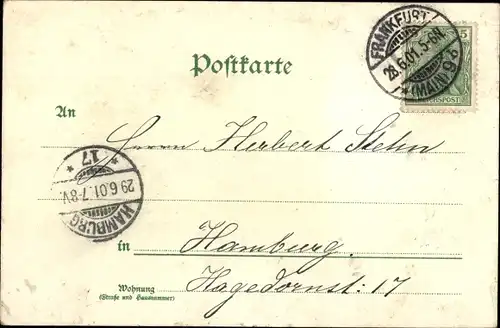 FRANKFURT
28.6.01.5-6N.
* (MAIN) 9a
5
REICHSPOST
Postkarte
An
Herrn Herbert Stehn
* 17 *
29.6.01.7-8V.
HAMBURG
in Hamburg.
Wohnung
(Straße und Hausnummer)
Hagedornst: 17